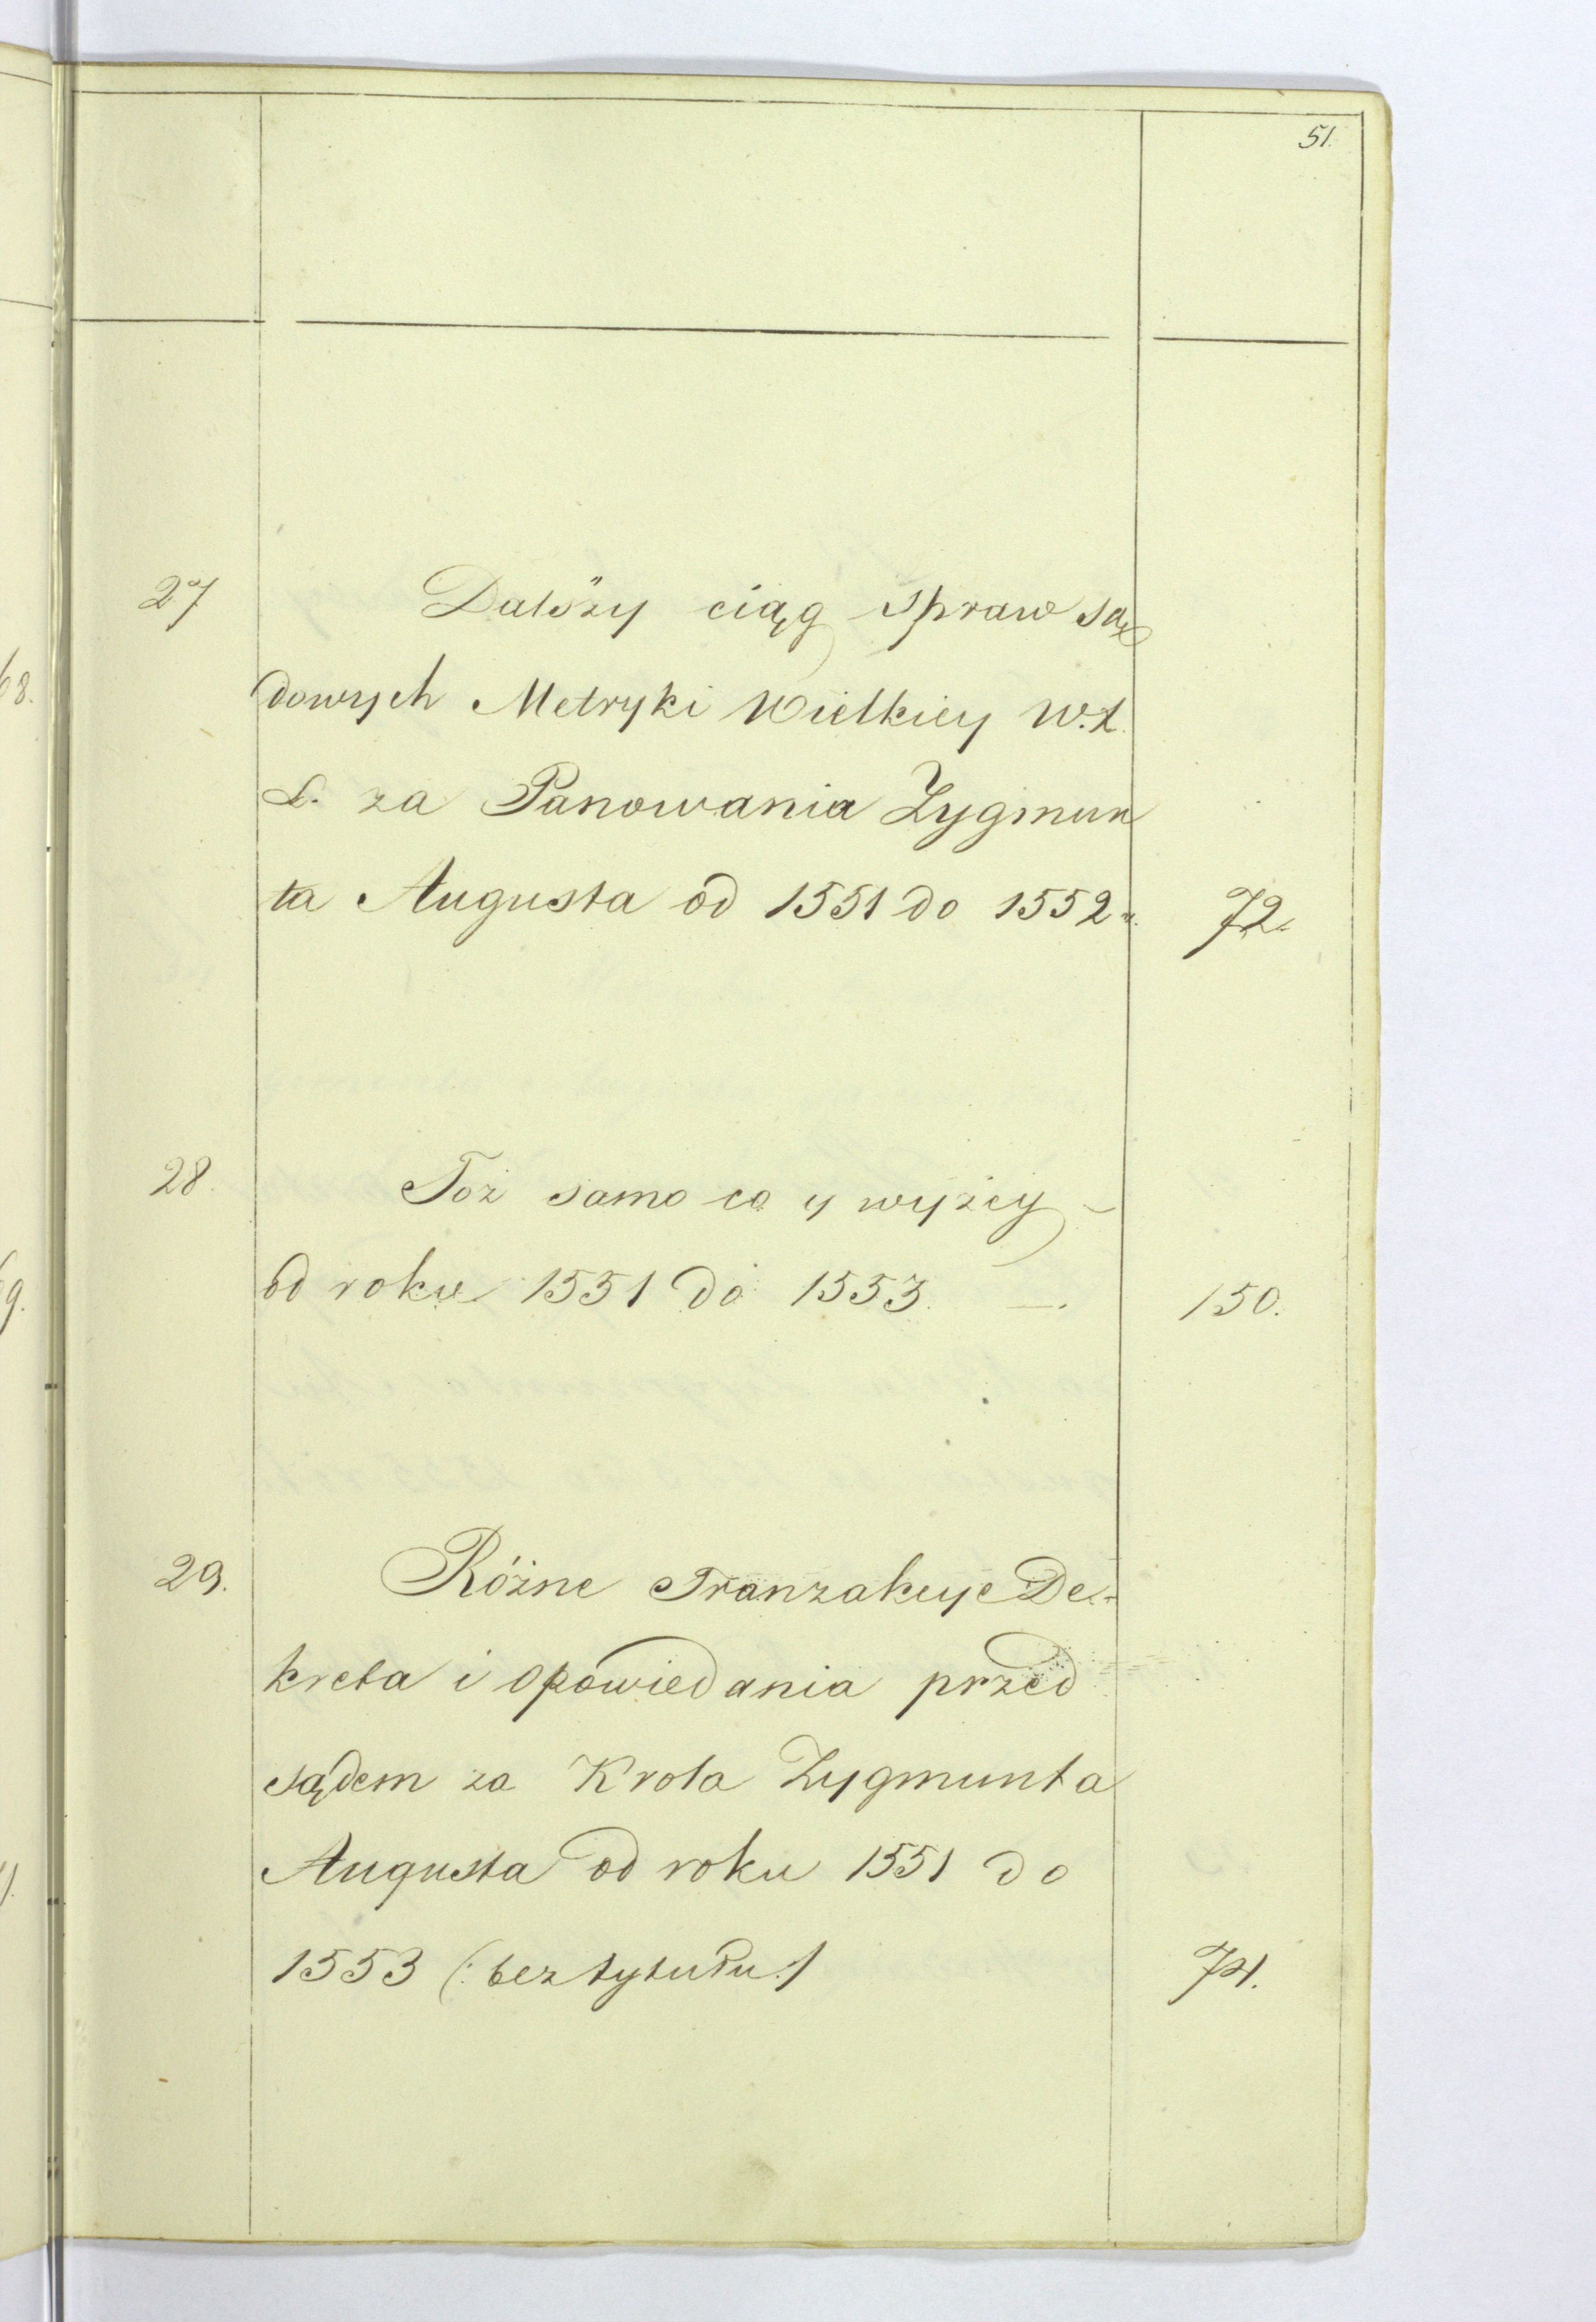 51.
27 Dalszy ciąg spraw są
dowych Metryki Wielkiey W. X.
L. za Panowania Zygmun
ta Augusta od 1551 do 1552 72.
28. Toż samo co y wyżey –
od roku 1551 do 1553. —. 150.
29. Różne Tranzakcye De-
kreta i opowiedania przed
sądem za Krola Zygmunta
Augusta od roku 1551 do
1553 (: bez tytułu :) 74.
68.
69.